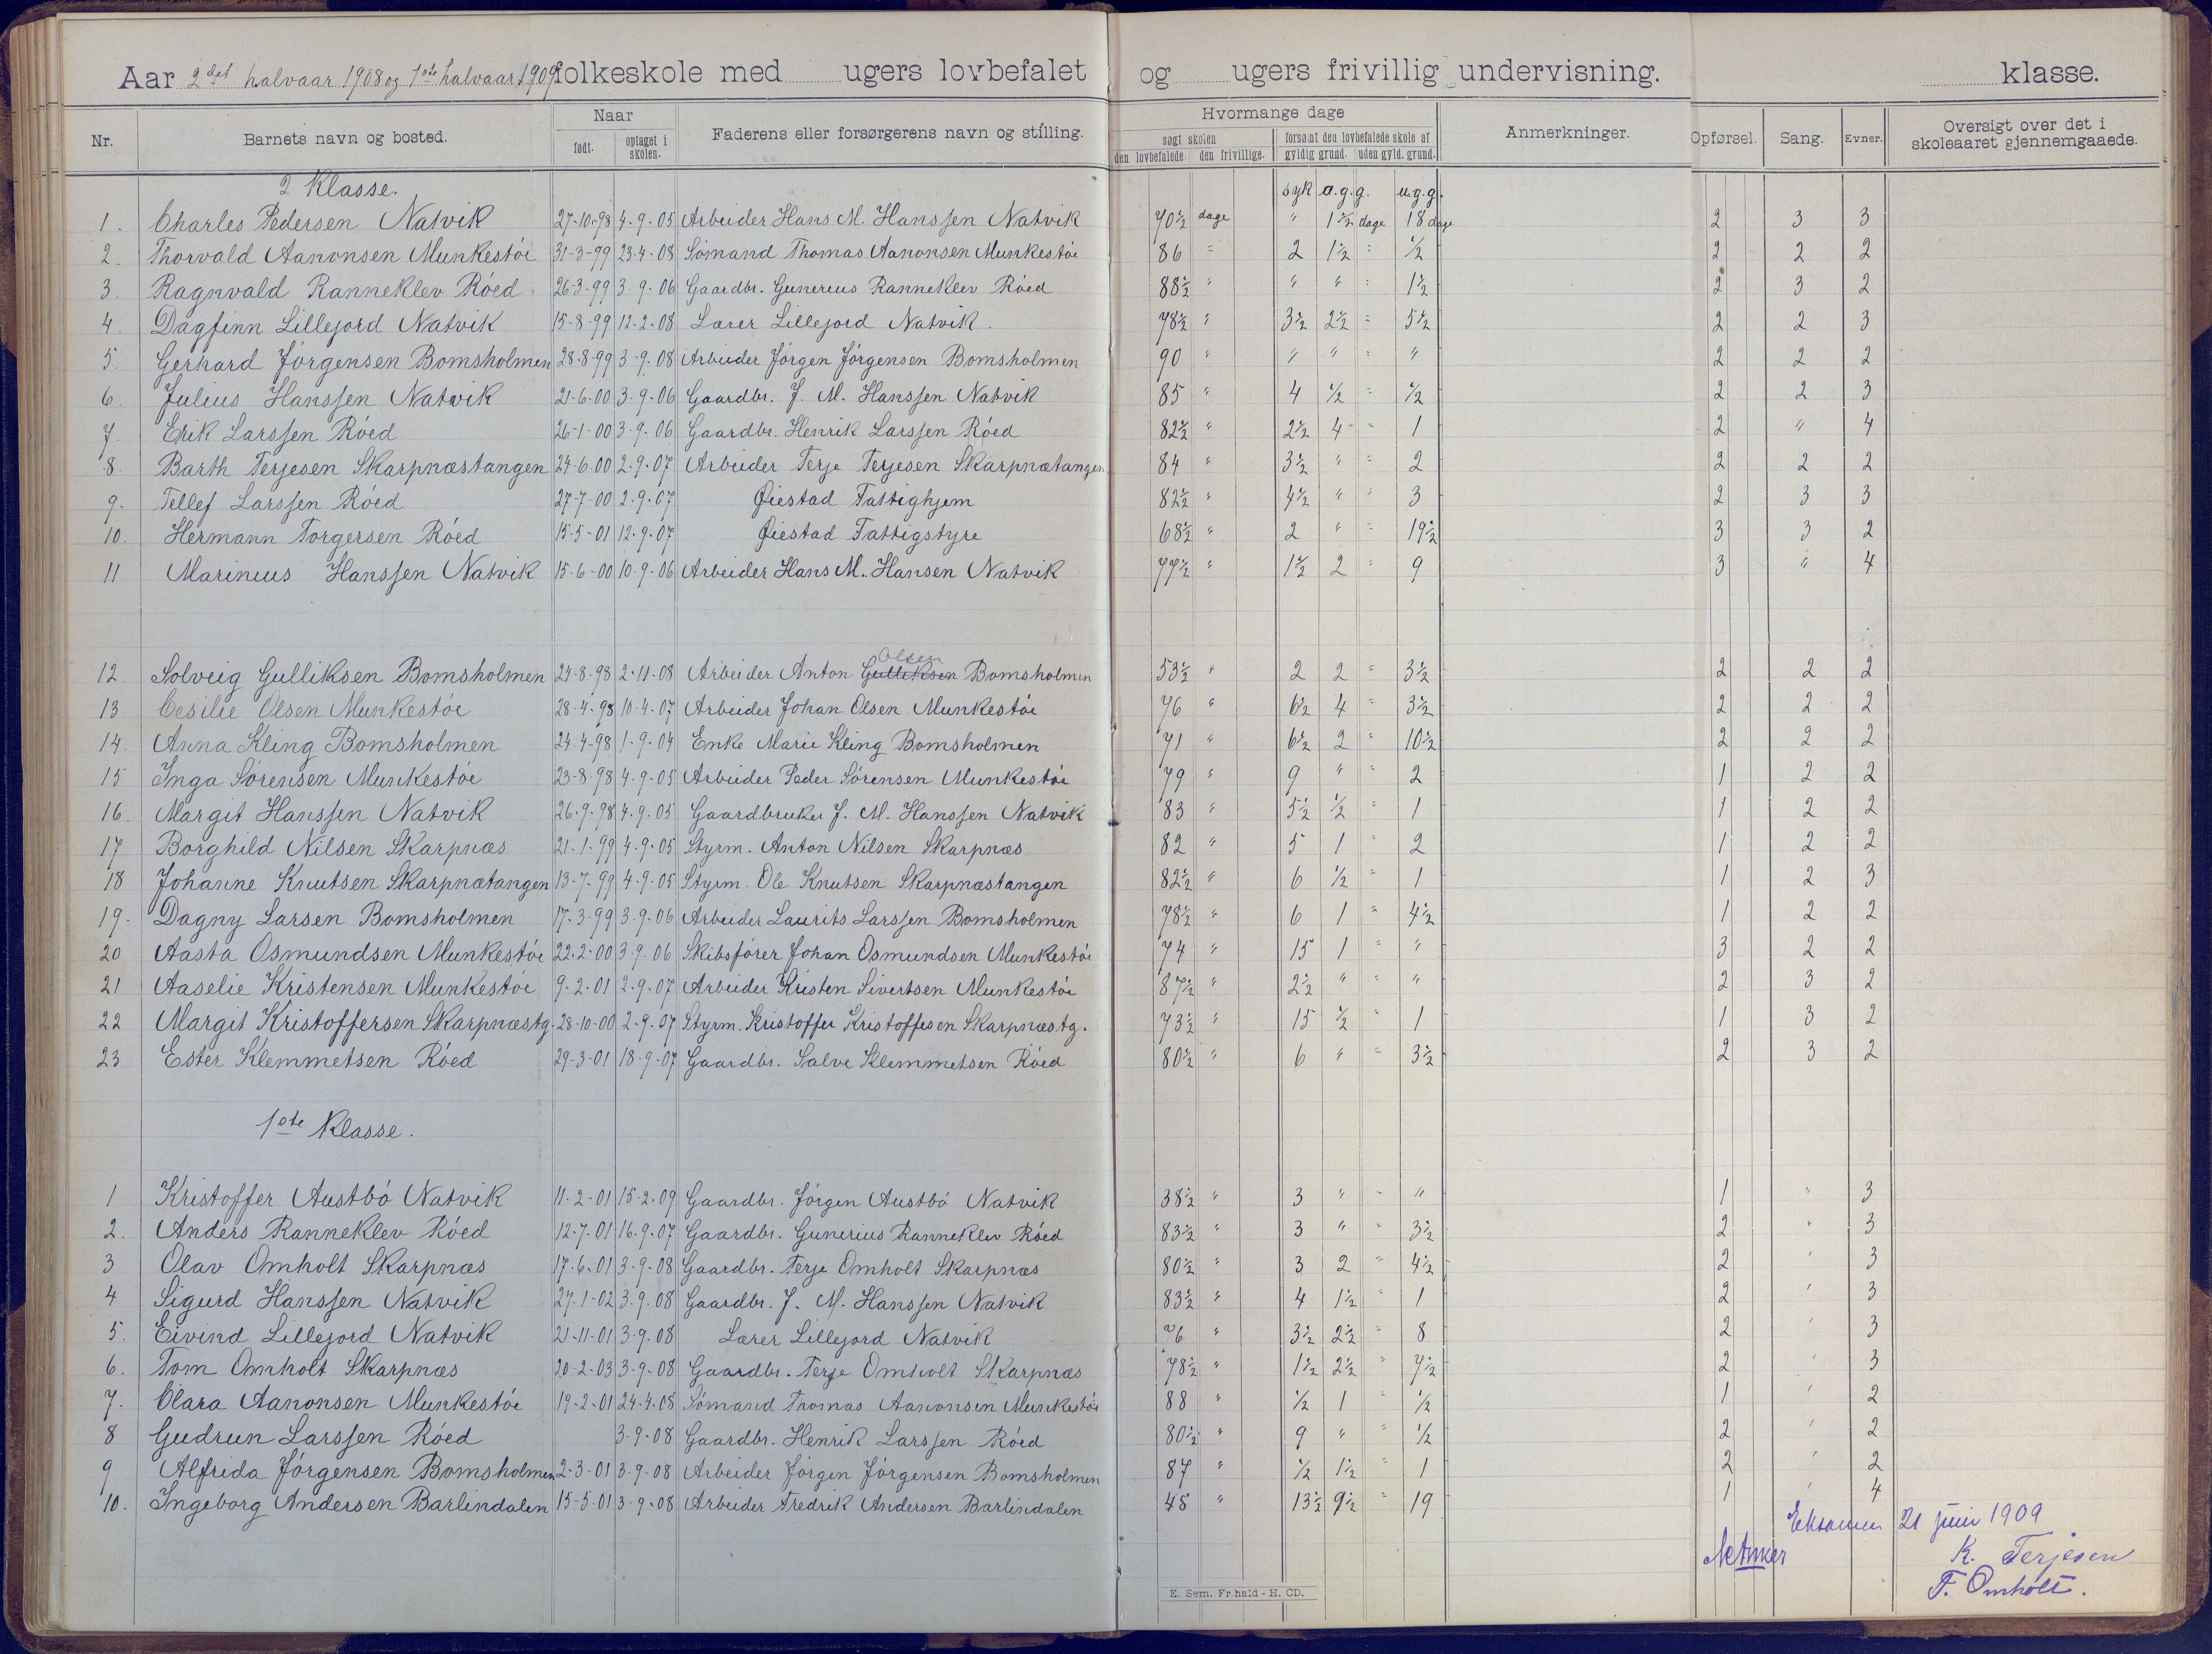 Aar 2det halvaar 1908 og 1ste halvaar 1909 folkeskole med ugers lovbefalet og ugers frivillig undervisning. klasse.
Nr. Barnets navn og bosted. Naar Faderens eller forsørgerens navn og stilling. Hvormange dage Anmerkninger. Opførsel. Sang. Evner. Oversigt over det i skoleaaret gjennemgaaede.
født. optaget i skolen. søgt skolen forsømt den lovbefalede skole af
den lovbefalede. den frivillige. gyldig grund. uden gyld. grund.
2 Klasse. syk a.g.g. u.g.g.
1. Charles Pedersen Natvik 27-10-98 4-9-05 Arbeider Hans M. Hanssen Natvik 70½ dage " 1½ dage 18 dage 2 3 3
2. Thorvald Aanonsen Munkestöi 31-3-99 23-4-08 Sömand Thomas Aanonsen Munkestöi 86 " 2 1½ " ½ 2 2 2
3. Ragnvald Ranneklev Röed 26-3-99 3-9-06 Gaardbr. Gunerius Ranneklev Röed 88½ " " " " 1½ 2 3 2
4. Dagfinn Lillejord Natvik 15-8-99 12-2-08 Lærer Lillejord Natvik. 78½ " 3½ 2½ " 5½ 2 2 3
5. Gerhard Jörgensen Bomsholmen 28-8-99 3-9-08 Arbeider Jörgen Jörgensen Bomsholmen 90 " " " " " 2 2 2
6. Julius Hanssen Natvik 21-6-00 3-9-06 Gaardbr. J. M. Hanssen Natvik 85 " 4 ½ " ½ 2 2 3
7. Erik Larssen Röed 26-1-00 3-9-06 Gaardbr. Henrik Larssen Röed 82½ " 2½ 4 " 1 2 " 4
8. Barth Terjesen Skarpnæstangen 24-6-00 2-9-07 Arbeider Terje Terjesen Skarpnætangen 84 " 3½ " " 2 2 2 2
9. Tellef Larssen Röed 27-7-00 2-9-07 Øiestad Fattighjem 82½ " 4½ " " 3 2 3 3
10. Hermann Torgersen Röed 15-5-01 12-9-07 Øiestad Fattigstyre 68½ " 2 " " 19½ 3 3 2
11 Marinius Hanssen Natvik 15-6-00 10-9-06 Arbeider Hans M. Hansen Natvik 77½ " 1½ 2 " 9 3 " 4
Olsen
12. Solveig Gulliksen Bomsholmen 24-8-98 2-11-08 Arbeider Anton Gulliksen Bomsholmen 53½ " 2 2 " 3½ 2 2 2
13 Cesilie Olsen Munkestöi 28-4-98 10-4-07 Arbeider Johan Olsen Munkestöi 76 " 6½ 4 " 3½ 2 2 2
14. Anna Kling Bomsholmen 24-4-98 1-9-04 Enke Marie Kling Bomsholmen 71 " 6½ 2 " 10½ 2 2 2
15 Inga Sörensen Munkestöi 23-8-98 4-9-05 Arbeider Peder Sörensen Munkestöi 79 " 9 " " 2 1 2 2
16. Margit Hanssen Natvik 26-9-98 4-9-05 Gaardbruker J. M. Hanssen Natvik 83 " 5½ ½ " 1 1 2 2
17 Borghild Nilsen Skarpnæs 21-1-99 4-9-05 Styrm. Anton Nilsen Skarpnæs 82 " 5 1 " 2 1 2 2
18 Johanne Knutsen Skarpnætangen 13-7-99 4-9-05 Styrm. Ole Knutsen Skarpnæstangen 82½ " 6 ½ " 1 1 2 3
19. Dagny Larsen Bomsholmen 17-3-99 3-9-06 Arbeider Laurits Larssen Bomsholmen 78½ " 6 1 " 4½ 1 2 2
20 Aasta Osmundsen Munkestöi 22-2-00 3-9-06 Skibsförer Johan Osmundsen Munkestöi 74 " 15 1 " " 3 2 2
21 Aaselie Kristensen Munkestöi 9-2-01 2-9-07 Arbeider Kristen Sivertsen Munkestöi 87½ " 2½ " " " 2 3 2
22 Margit Kristoffersen Skarpnæstg. 28-10-00 2-9-07 Styrm. Kristoffer Kristoffesen Skarpnæstg. 73½ " 15 ½ " 1 1 3 2
23 Ester Klemmetsen Röed 29-3-01 18-9-07 Gaardbr. Salve Klemmetsen Röed 80½ " 6 " " 3½ 2 3 2
1ste Klasse.
1 Kristoffer Austbö Natvik 11-2-01 15-2-09 Gaardbr. Jörgen Austbö Natvik 38½ " 3 " " " 1 " 3
2. Anders Ranneklev Röed 12-7-01 16-9-07 Gaardbr. Gunerius Ranneklev Röed 83½ " 3 " " 3½ 2 " 3
3 Olav Omholt Skarpnæs 17-6-01 3-9-08 Gaardbr. Terje Omholt Skarpnæs 80½ " 3 2 " 4½ 2 ' 3
4 Sigurd Hanssen Natvik 27-1-02 3-9-08 Gaardbr. J. M. Hanssen Natvik 83½ " 4 1½ " 1 2 ' 3
5. Eivind Lillejord Natvik 21-11-01 3-9-08 Lærer Lillejord Natvik 76 " 3½ 2½ " 8 2 ' 3
6. Tom Omholt Skarpnæs 20-2-03 3-9-08 Gaardbr. Terje Omholt Skarpnæs 78½ " 1½ 2½ " 7½ 2 ' 3
7. Clara Aanonsen Munkestöi 19-2-01 24-4-08 Sömand Thomas Aanonsen Munkestöi 88 " ½ 1 " ½ 1 ' 2
8 Gudrun Larssen Röed 3-9-08 Gaardbr. Henrik Larssen Röed 80½ " 9 " " ½ 2 ' 2
9 Alfrida Jörgensen Bomsholmen 2-3-01 3-9-08 Arbeider Jörgen Jörgensen Bomsholmen 87 " ½ 1½ " 1 2 ' 2
10. Ingeborg Andersen Barlindalen 15-5-01 3-9-08 Arbeider Fredrik Andersen Barlindalen 48 " 13½ 9½ " 19 1 ' 4
Eksamen 21 juni 1909
K. Terjesen
F. Omholt.
E. Sem. Fr.hald - H. CD.